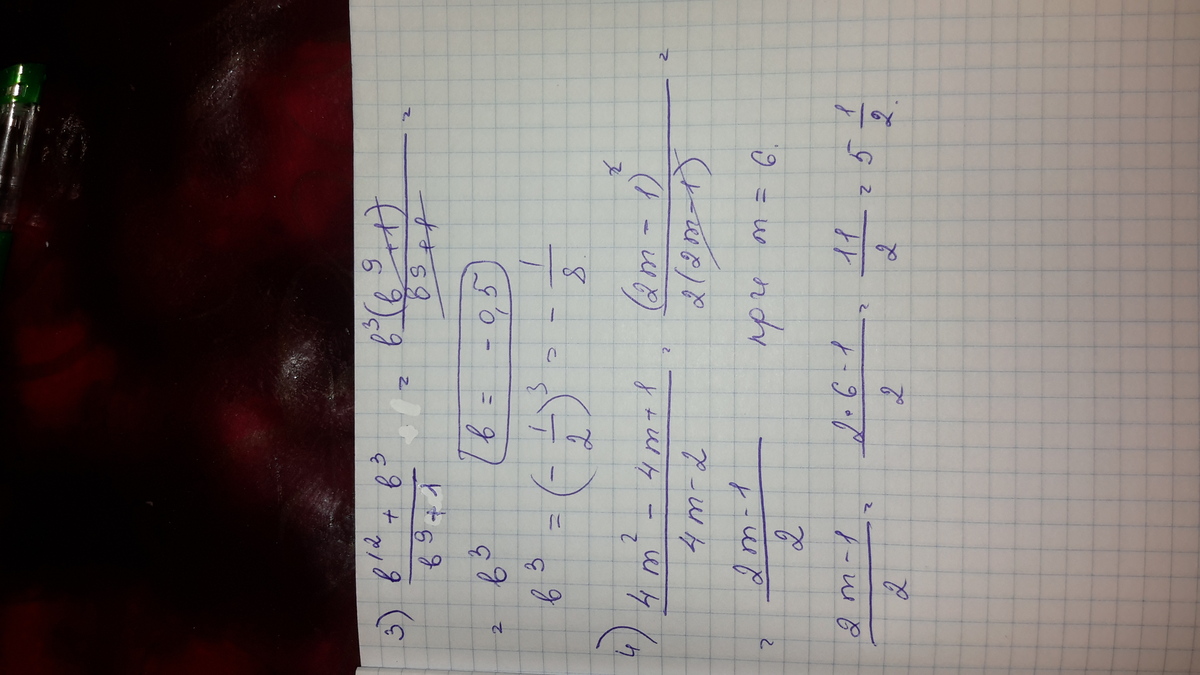 3) (b¹² + b³)/(b⁹ + 1) = b³(b⁹ + 1)/(b⁹ + 1) =
= b³ b = - 0,5
b³ = (- 1/2)³ = - 1/8.
4) (4m² - 4m + 1)/(4m - 2) = (2m - 1)²/2(2m - 1) =
= (2m - 1)/2 при m = 6.
(2m - 1)/2 = (2·6 - 1)/2 = 11/2 = 5 1/2.